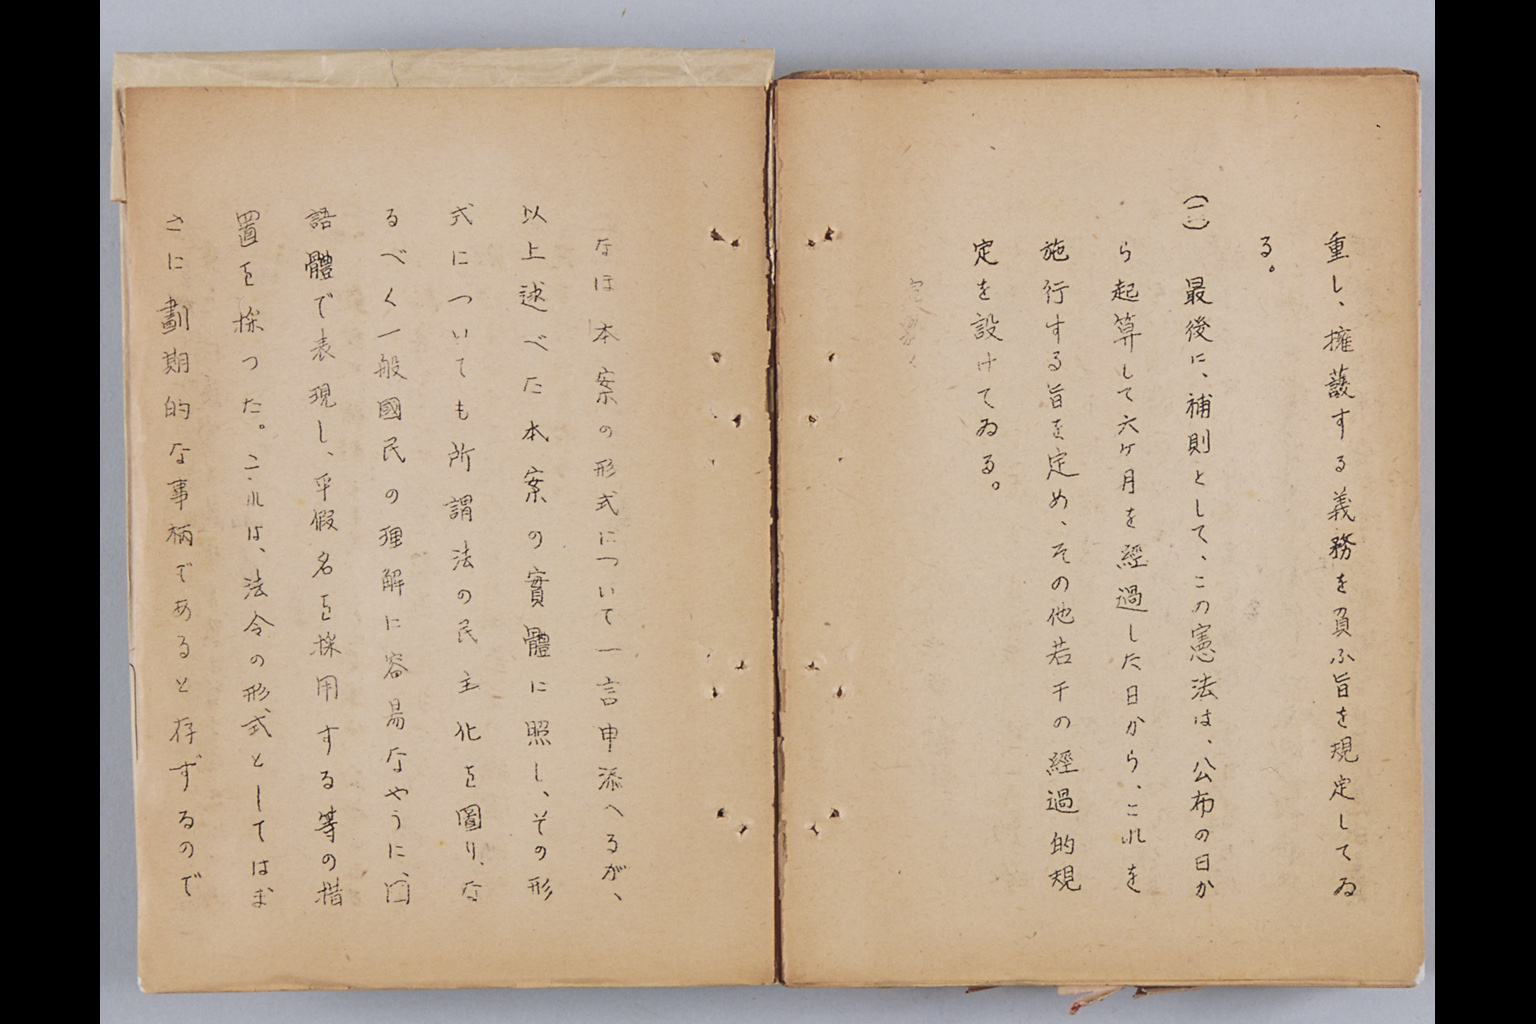 重し、擁護する義務を負ふ旨を規定してゐ
る。
(二)　最後に、補則として、この憲法は、公布の日か
ら起算して六ケ月を経過した日から、これを
施行する旨を定め、その他若干の經過的規
定を設けてゐる。
なほ本案の形式について一言申添へるが、
以上述べた本案の實體に照し、その形
式についても所謂法の民主化を圖り、な
るべく一般國民の理解に容易なやうに、口
語體で表現し、平假名を採用する等の措
置を採つた。これは、法令の形式としてはま
さに劃期的な事柄であると存ずるので